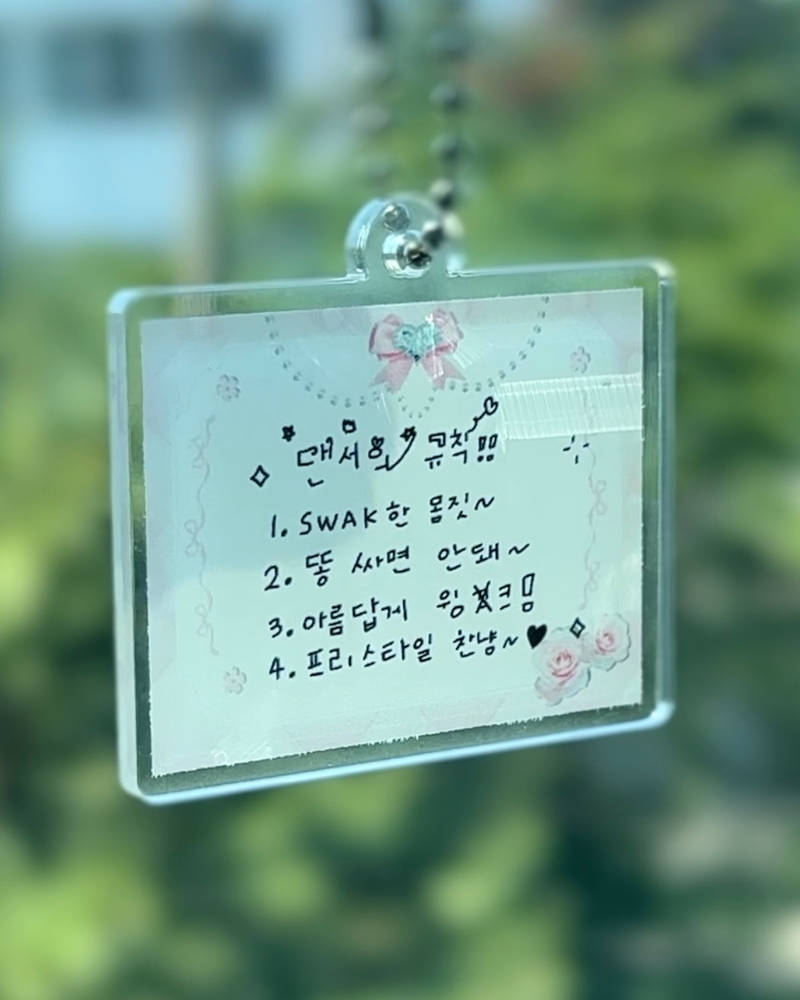 댄서의 규칙!!
1. SWAK한 몸짓~
2. 똥 싸면 안돼~
3. 아름답게 윙크!
4. 프리스타일 찬냥~♥